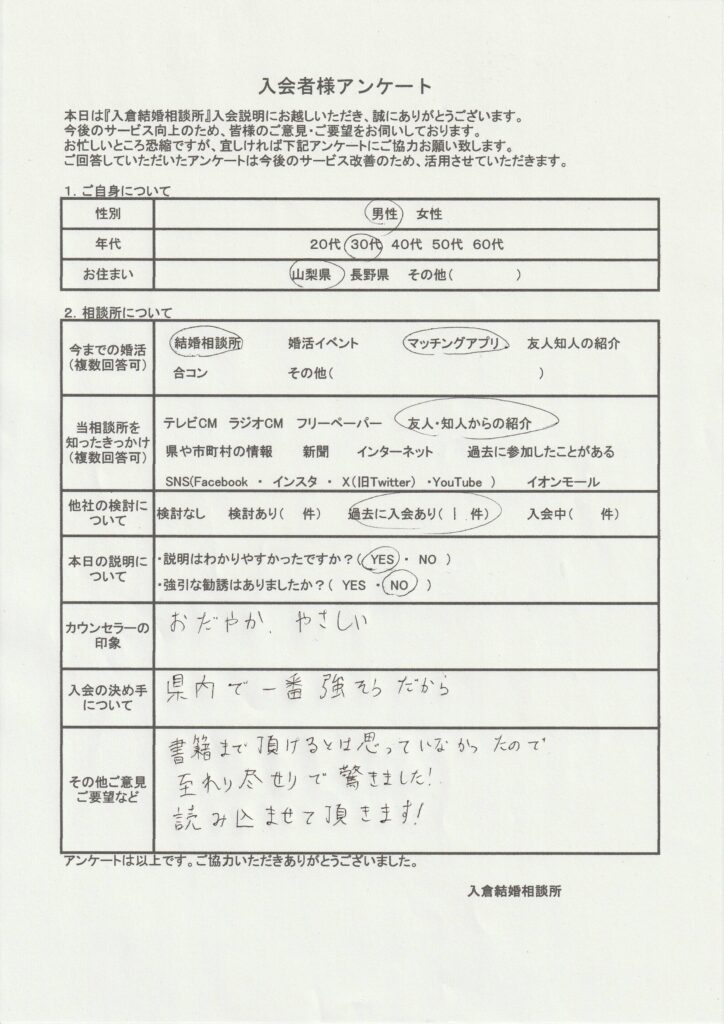 入会者様アンケート
本日は『入倉結婚相談所』入会説明にお越しいただき、誠にありがとうございます。
今後のサービス向上のため、皆様のご意見・ご要望をお伺いしております。
お忙しいところ恐縮ですが、宜しければ下記アンケートにご協力お願い致します。
ご回答していただいたアンケートは今後のサービス改善のため、活用させていただきます。
1. ご自身について
性別 男性 女性
年代 20代 30代 40代 50代 60代
お住まい 山梨県 長野県 その他( )
2. 相談所について
今までの婚活
(複数回答可)
結婚相談所 婚活イベント マッチングアプリ 友人知人の紹介
合コン その他( )
当相談所を
知ったきっかけ
(複数回答可)
テレビCM ラジオCM フリーペーパー 友人・知人からの紹介
県や市町村の情報 新聞 インターネット 過去に参加したことがある
SNS(Facebook ・ インスタ ・ X(旧Twitter) ・YouTube ) イオンモール
他社の検討に
ついて
検討なし 検討あり( 件) 過去に入会あり( 1 件) 入会中( 件)
本日の説明に
ついて
・説明はわかりやすかったですか?( YES ・ NO )
・強引な勧誘はありましたか?( YES ・ NO )
カウンセラーの
印象
おだやか、やさしい
入会の決め手
について
県内で一番強そうだから
その他ご意見
ご要望など
書籍まで頂けるとは思っていなかったので
至れり尽せりで驚きました!
読み込ませて頂きます!
アンケートは以上です。ご協力いただきありがとうございました。
入倉結婚相談所